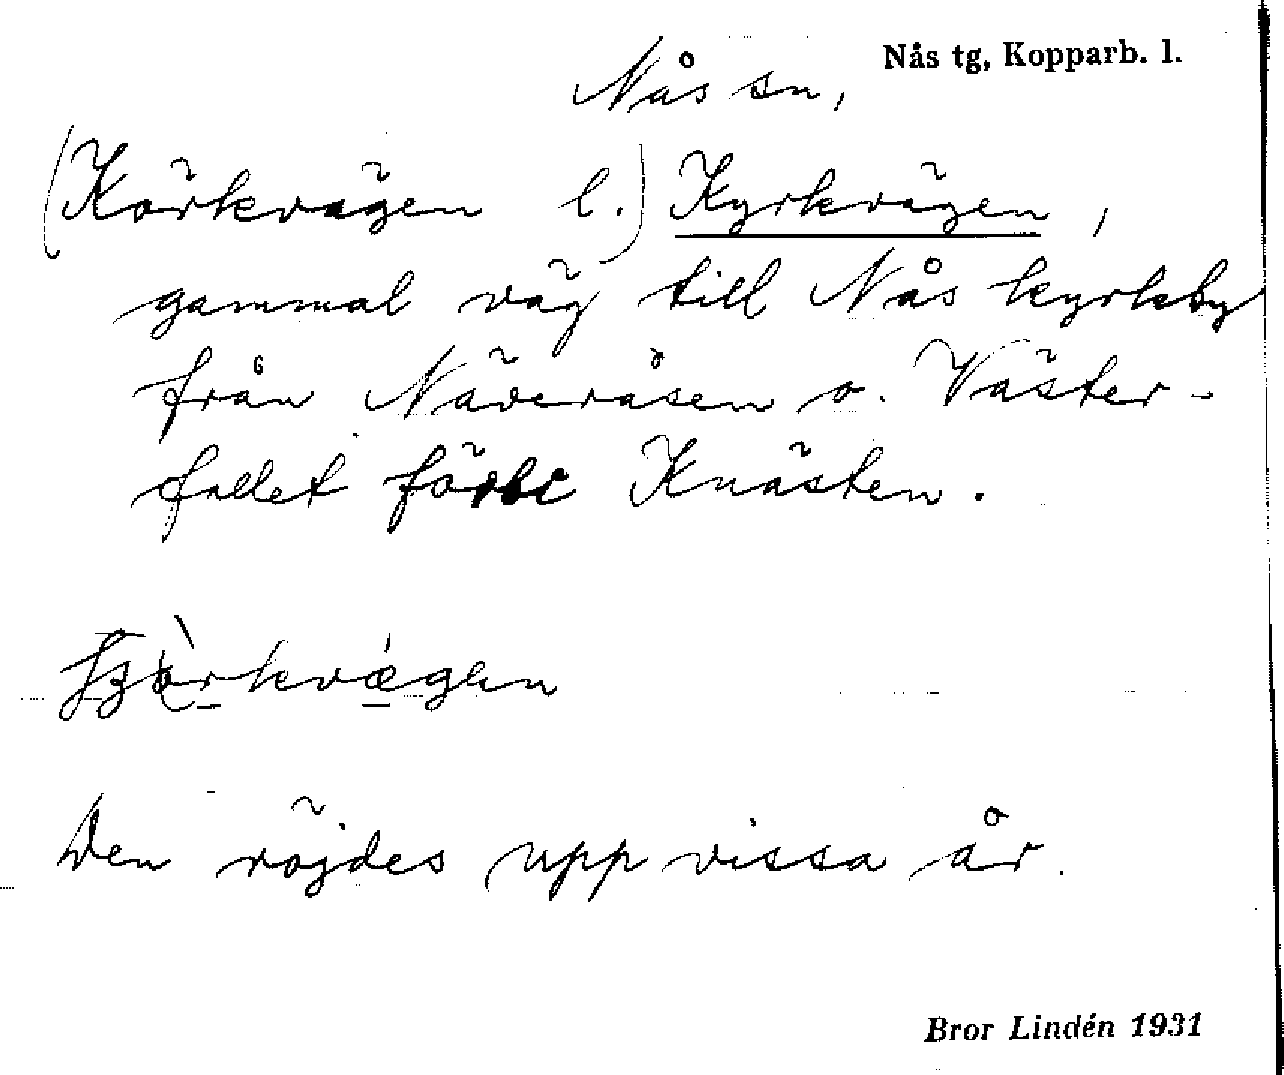 Nås tg, Kopparb. l.
Nås sn,
(Körkvägen l.) Kyrkvägen,
gammal väg till Nås kyrkby
från Näveråsen o. Väster-
fallet förbi Knästen.
Den röjdes upp vissa år.
Bror Lindén 1931